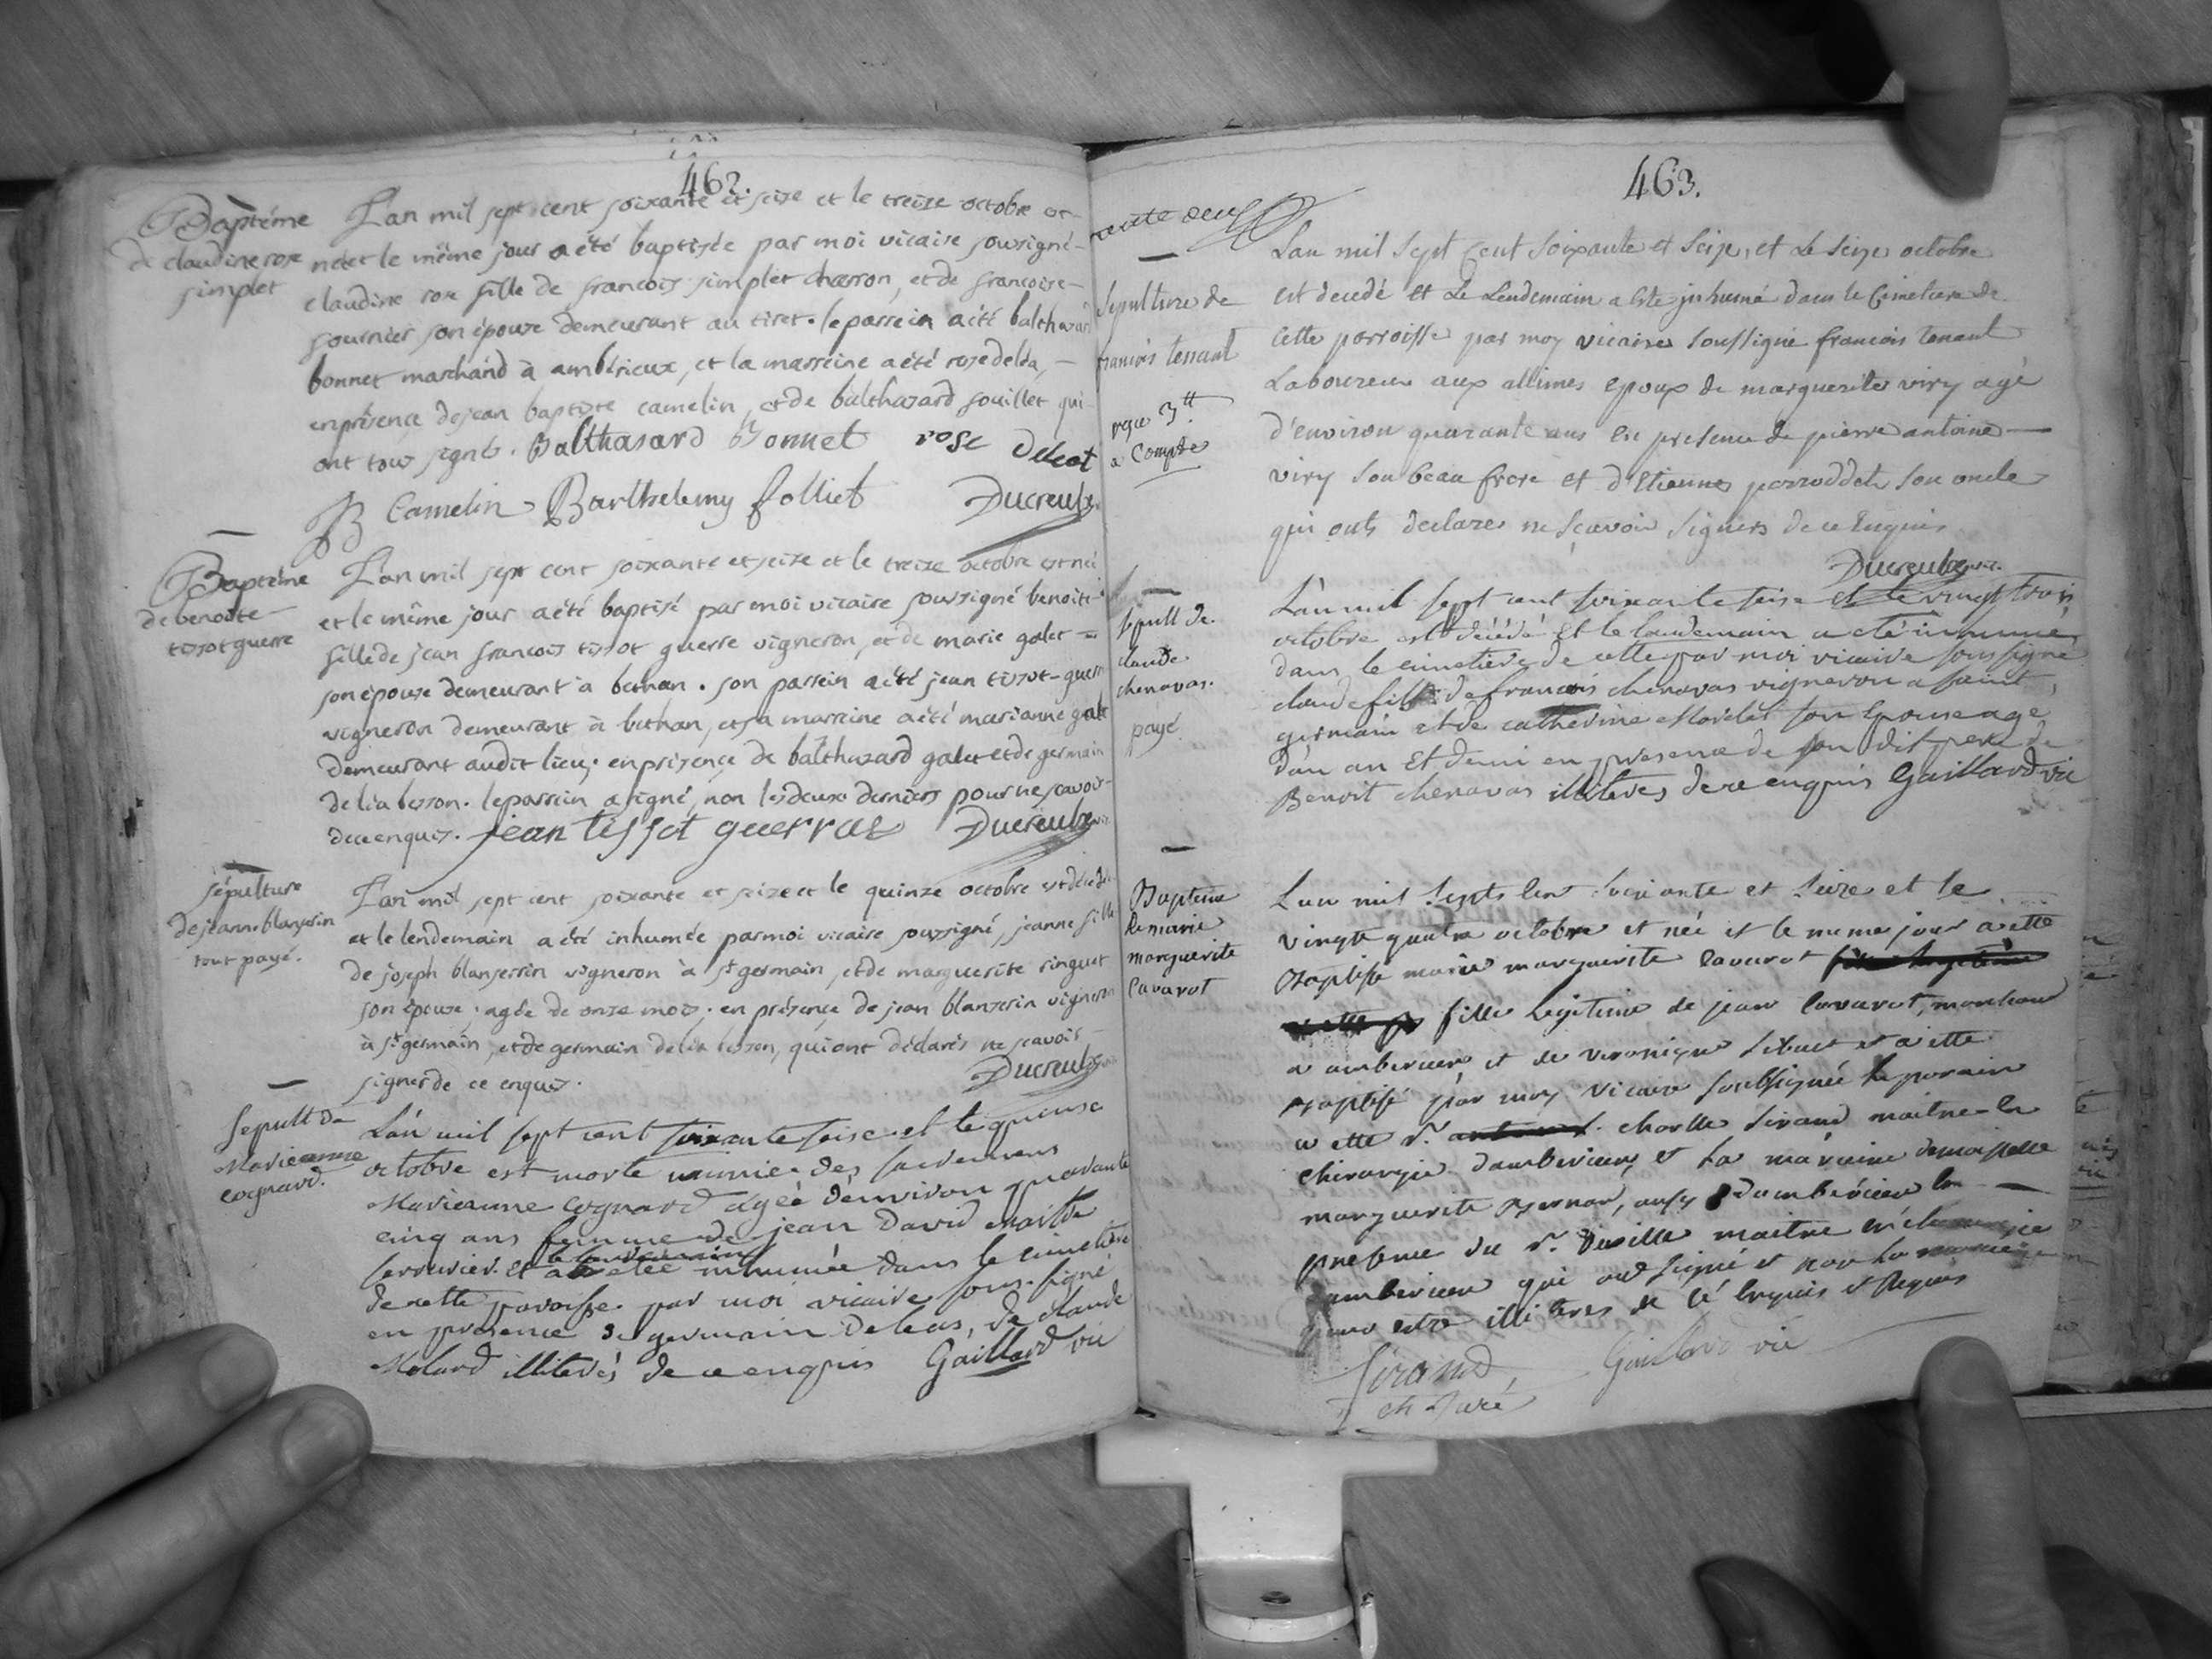 462.
Baptéme
de claudine rose
simplet
L'an mil sept cent soixante et seize et le treize octobre est
née et le même jour a été baptisée par moi vicaire sousigné
claudine rose fille de francois simplet charron, et de francoise
fournier son épouse demeurant au tiret. le parrein a été balthazard
bonnet marchand à ambérieux, et la marreine a été rose deléa,
en présence de jean baptiste camelin, et de balthazard folliet qui
ont tous signés. Balthasard Bonnet rose deleat
JB Camelin Barthelemy folliet Ducreulx
Baptéme
de benoite
tissot guerre
L'an mil sept cent soixante et seize et le treize octobre est née
et le même jour a été baptisé par moi vicaire soussigné benoite
fille de jean francois tissot guerre vigneron, et de marie galet
son épouse demeurant à bethan. son parrein a été jean tissot-guerre
vigneron demeurant à bethan, et sa marreine a été marianne galet
demeurant audit lieu. en présence de balthazard galet et de germain
de léa besson. le parrein a signé, non les deux derniers pour ne scavoir
de ce enquis. jean tissot guerraz Ducreulx vic.
sépulture
de jeanne blanserin
tout payé.
L'an mil sept cent soixante et seize et le quinze octobre est décédée
et le lendemain a été inhumée par moi vicaire soussigné, jeanne fille
de joseph blanserrin vigneron à st germain, et de marguerite ringuet
son épouse, agée de onze mois. en présence de jean blanserin vigneron
à st germain, et de germain deléa besson, qui ont déclarés ne scavoir
signer de ce enquis. Ducreulx
sepult de
Marieanne
cognard.
L'an mil sept cent soixante seise et le quense
octobre est morte munnie des sacremens
Marieanne cognard agée d'environ quarante
cinq ans femme de jean David maitre
serrurier. et a le lendemain etée inhumée dans le cimetiere
de cette paroisse par moi vicaire sous-signé
en presence de germain deleas, de claude
Molard illiterés de ce enquis Gaillard vic
463.
sepulture de
francois tenant
reçu 3tt
a Compte
L'an mil sept Cent soixante et seize, et Le seize octobre
est decedé et Le Lendemain a été jnhumé dans le Cimetiere de
Cette parroisse par moy vicaire soussigné francois tenant
Laboureur aux allimes epoux de marguerite viry agé
d'environ quarante ans en presence de pierre antoine
viry son beau frere et d'Etienne perroddet son oncle
qui onts declarés ne sçavoir signers de ce Enquis
Ducreulx vic.
sepult de
claude
chenavas.
payé.
L'an mil sept cent soixante seise et le vingt trois
octobre est décédé et le landemain a eté inhumé
dans le cimetiere de cette par moi vicaire sous signé
claude fils de francois chenavas vigneron a saint
germain et de catherine Morelet son epouse age
d'un an et demi en presence de son dit pere de
Benoit chenavas illiterés de ce enquis Gaillard vic
Bapteme
de marie
marguerite
Cavarot
L'an mil septs Cent soixante et seize et le
vingte quatre octobre et née et le meme jour a ette
Baptisse marie marguerite Cavarot
fille legitime de jean Cavarot, marchand
a amberieux et de veronique sibuet et a ette
Baptisé par moy vicaire soubsigné le parain
a ette Sr. charlle Sirand maitre en
chirurgie d'amberieux et la maraine demoiselle
marguerite Bernard, aussy d'amberieux en
presence du Sr. maitre en chirurgie
amberieux qui ont signé et non la
pour estre illiteres de cé Enquis et Requis
Sirand Gaillard vic
ch Juré